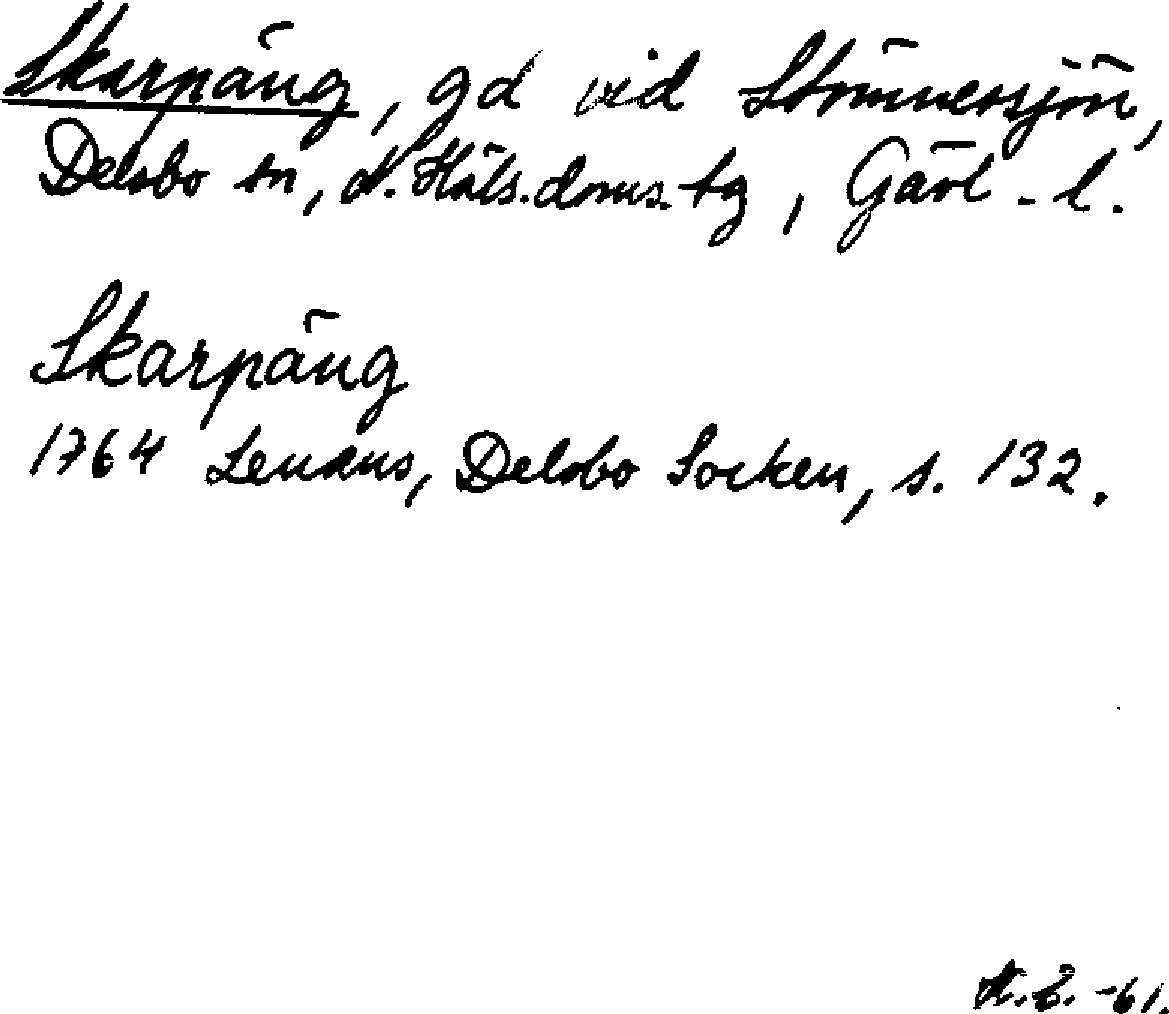 Skarpäng, gd vid Strömnessjön,
Delsbo sn, N. Häls. doms. tg, Gävl. l.
Skarpäng
1764 Lenæus, Delsbo Socken, s. 132.
-61.